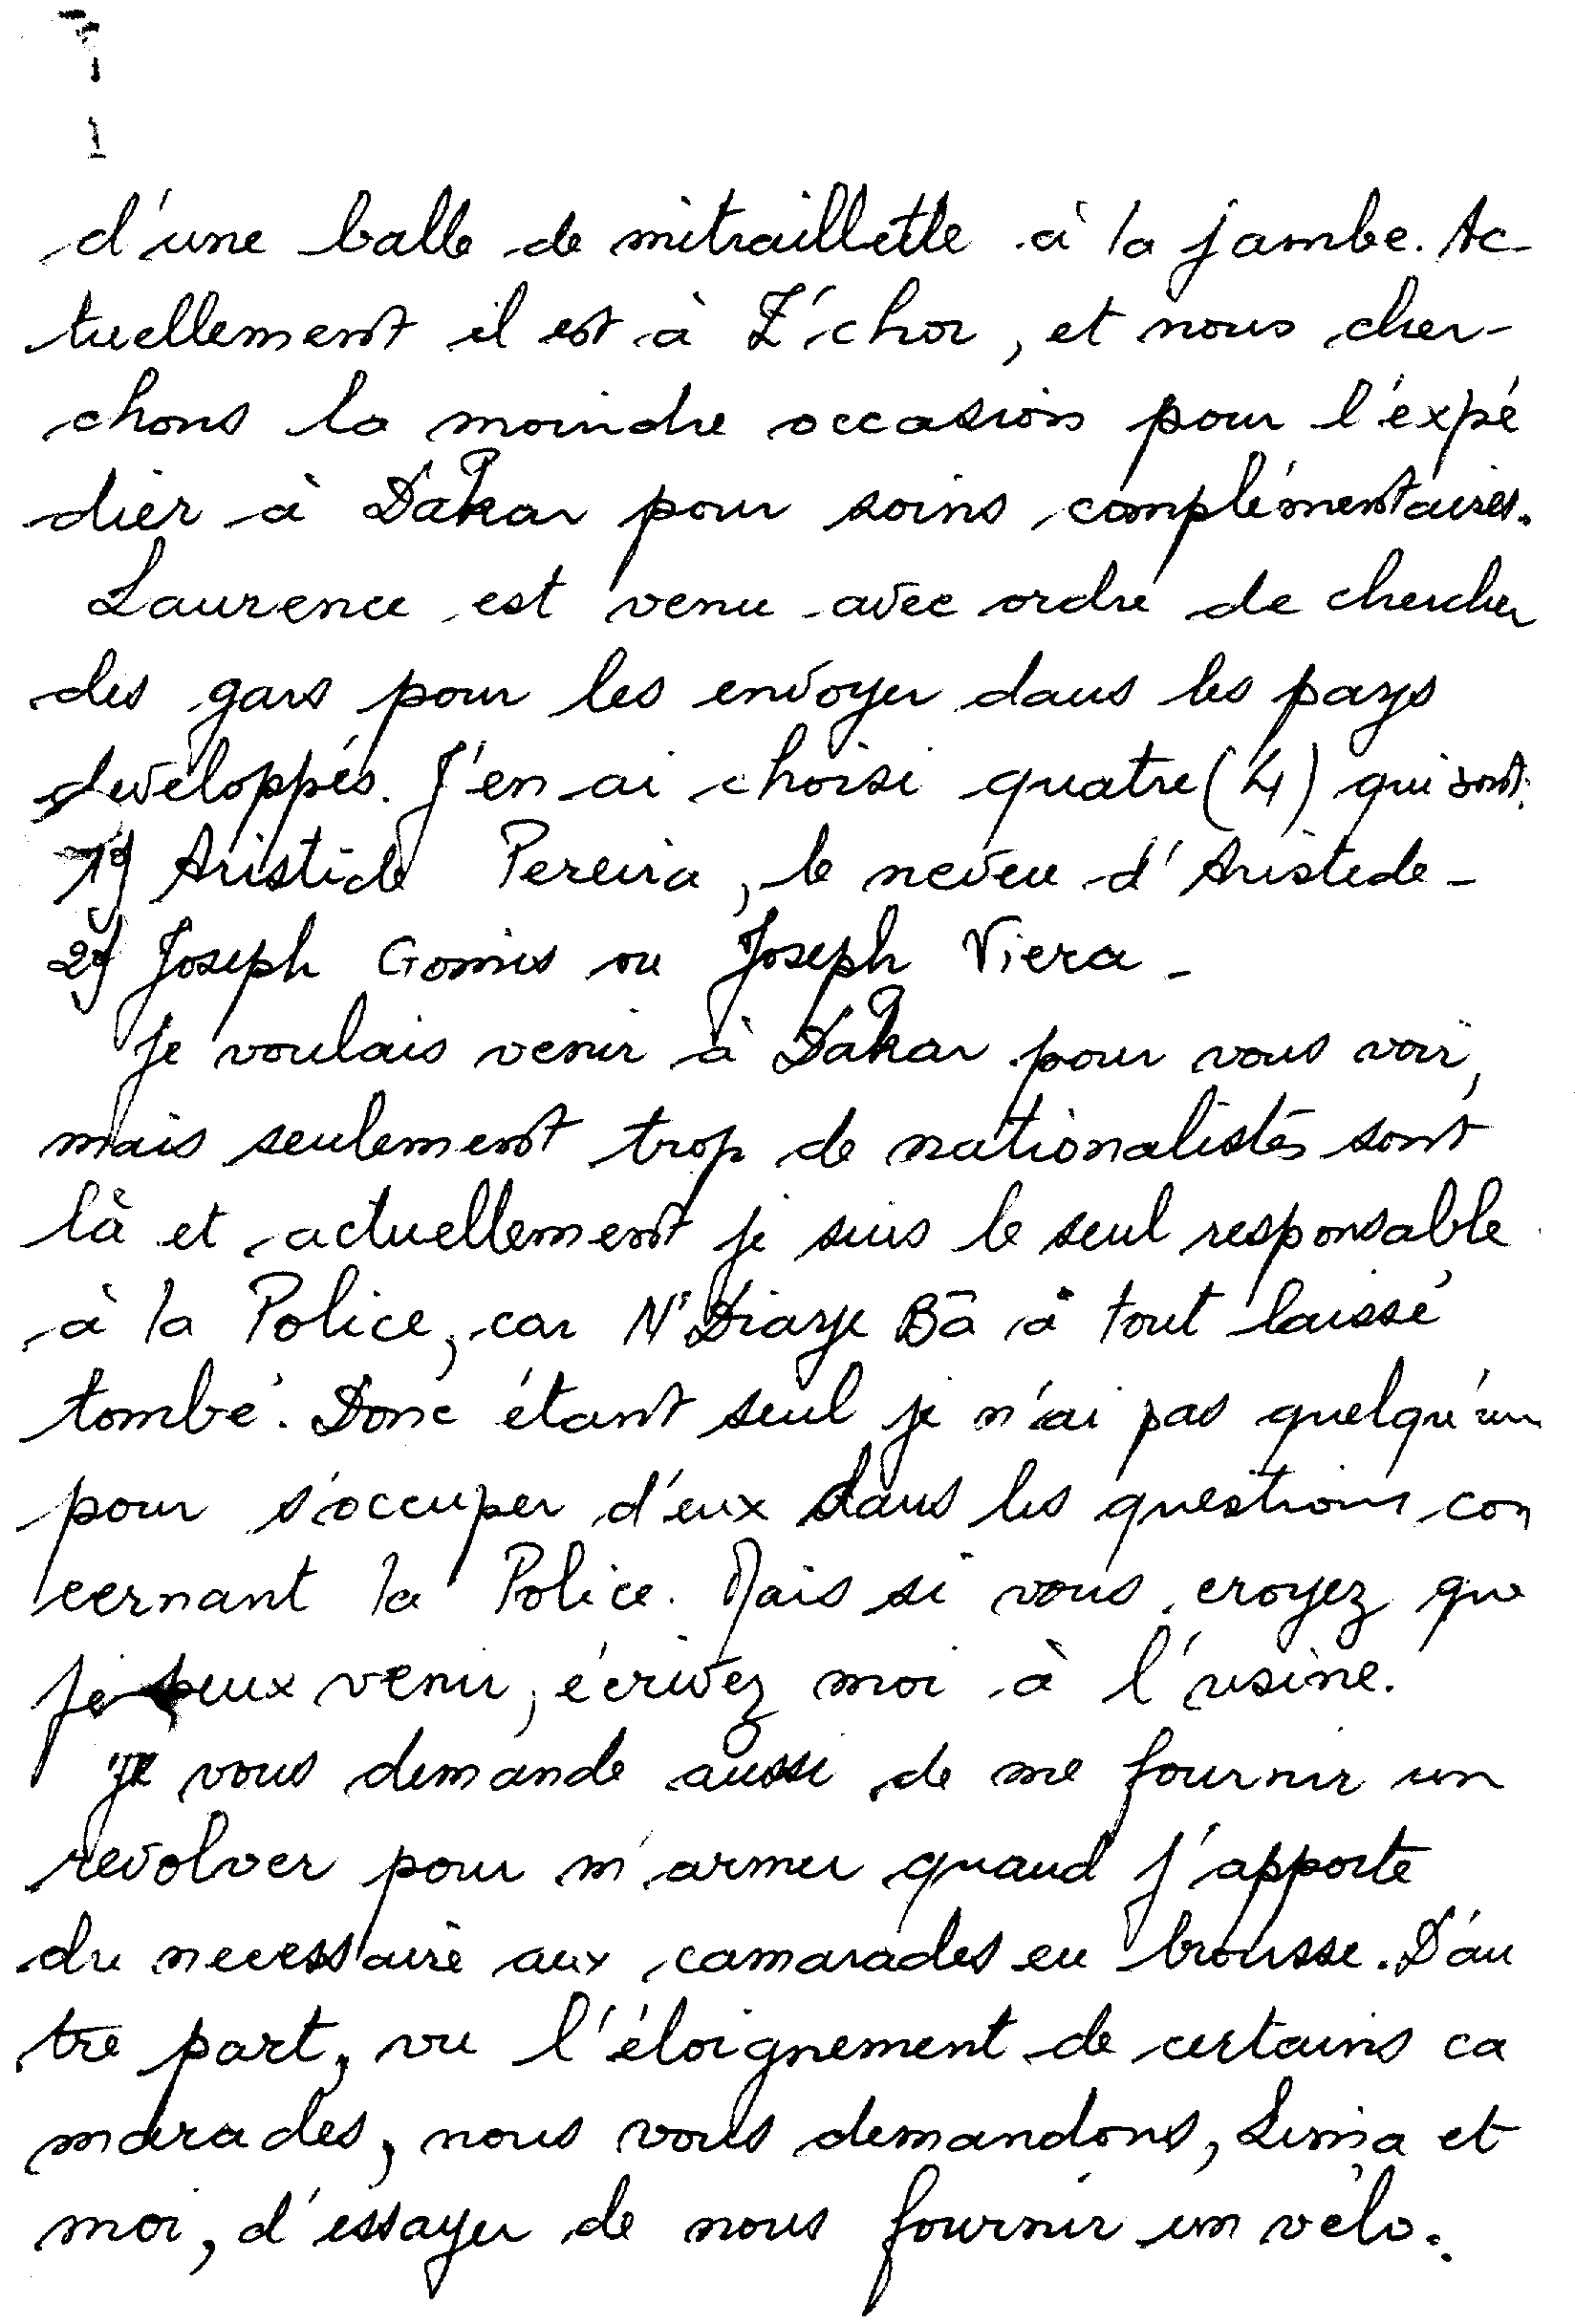 d'une balle de mitraillette à la jambe. Ac-
tuellement il est à Z'chor, et nous cher-
chons la moindre occasion pour l'expé
dier à Dakar pour soins complémentaires.
Laurence est venu avec ordre de chercher
des gars pour les envoyer dans les pays
développés. J'en ai choisi quatre (4) qui sont:
1º) Aristide Pereira, le neveu d'Aristede -
2º) Joseph Gomis ou Joseph Viera -
Je voulais venir à Dakar pour vous voir,
mais seulement trop de nationalistes sont
là et actuellement je suis le seul responsable
à la Police, car N'Diaye Bâ à tout laissé
tombé. Donc étant seul je n'ai pas quelqu'un
pour s'occuper d'eux dans les questions con
cernant la Police. Mais si vous croyez que
je peux venir, écrivez moi à l'usine.
Je vous demande aussi de me fournir un
revolver pour m'armer quand j'apporte
du necessaire aux camarades en brousse. D'au
tre part, vu l'éloignement de certains ca
marades, nous vous demandons, Lima et
moi, d'essayer de nous fournir un vélo.